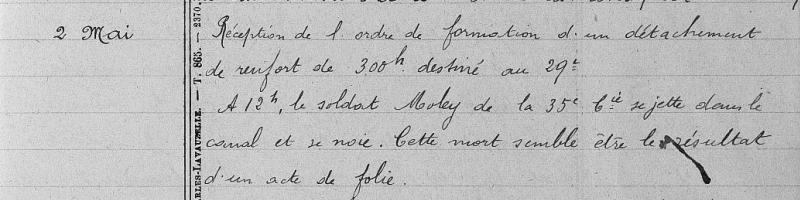 2 Mai
Réception de l'ordre de formation d'un détachement
de renfort de 300h. destiné au 29e
A 12h, le soldat Moley de la 35e Cie se jette dans le
canal et se noie. Cette mort semble être le résultat
d'un acte de folie.
RLES-LAVAUZELLE. — T. 865. — 2370.